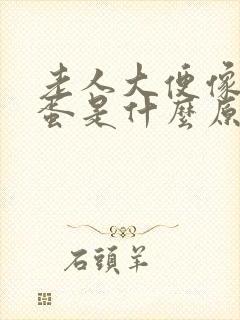 老人大便像
蛋是什麼原
石頭羊